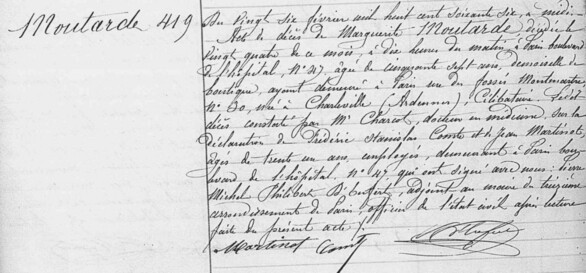 Moutarde 419
Du vingt six février mil huit cent soixante six, à midi.
Acte de décès de Marguerite Moutarde, décédée
vingt quatre de ce mois, à dix heures du matin, à Paris boulevard
de l'hôpital, N° 47, âgée de cinquante sept ans, demoiselle de
boutique, ayant demeuré à Paris rue du fossé Montmartre
N° 30, née à Charleville (Ardennes); Célibataire. Ledit
décès constaté par Mr Charcot, docteur en médecine, sur la
déclaration de Frédéric Stanislas Comte et de Martinot
âgés de trente un ans, employés, demeurant à Paris bou
levard de l'hôpital, N° 47 qui ont signé avec nous:
Michel Philibert, adjoint au maire du treizième
arrondissement de Paris, officier de l'état civil après lecture
faite du présent acte.
Martinot Comte